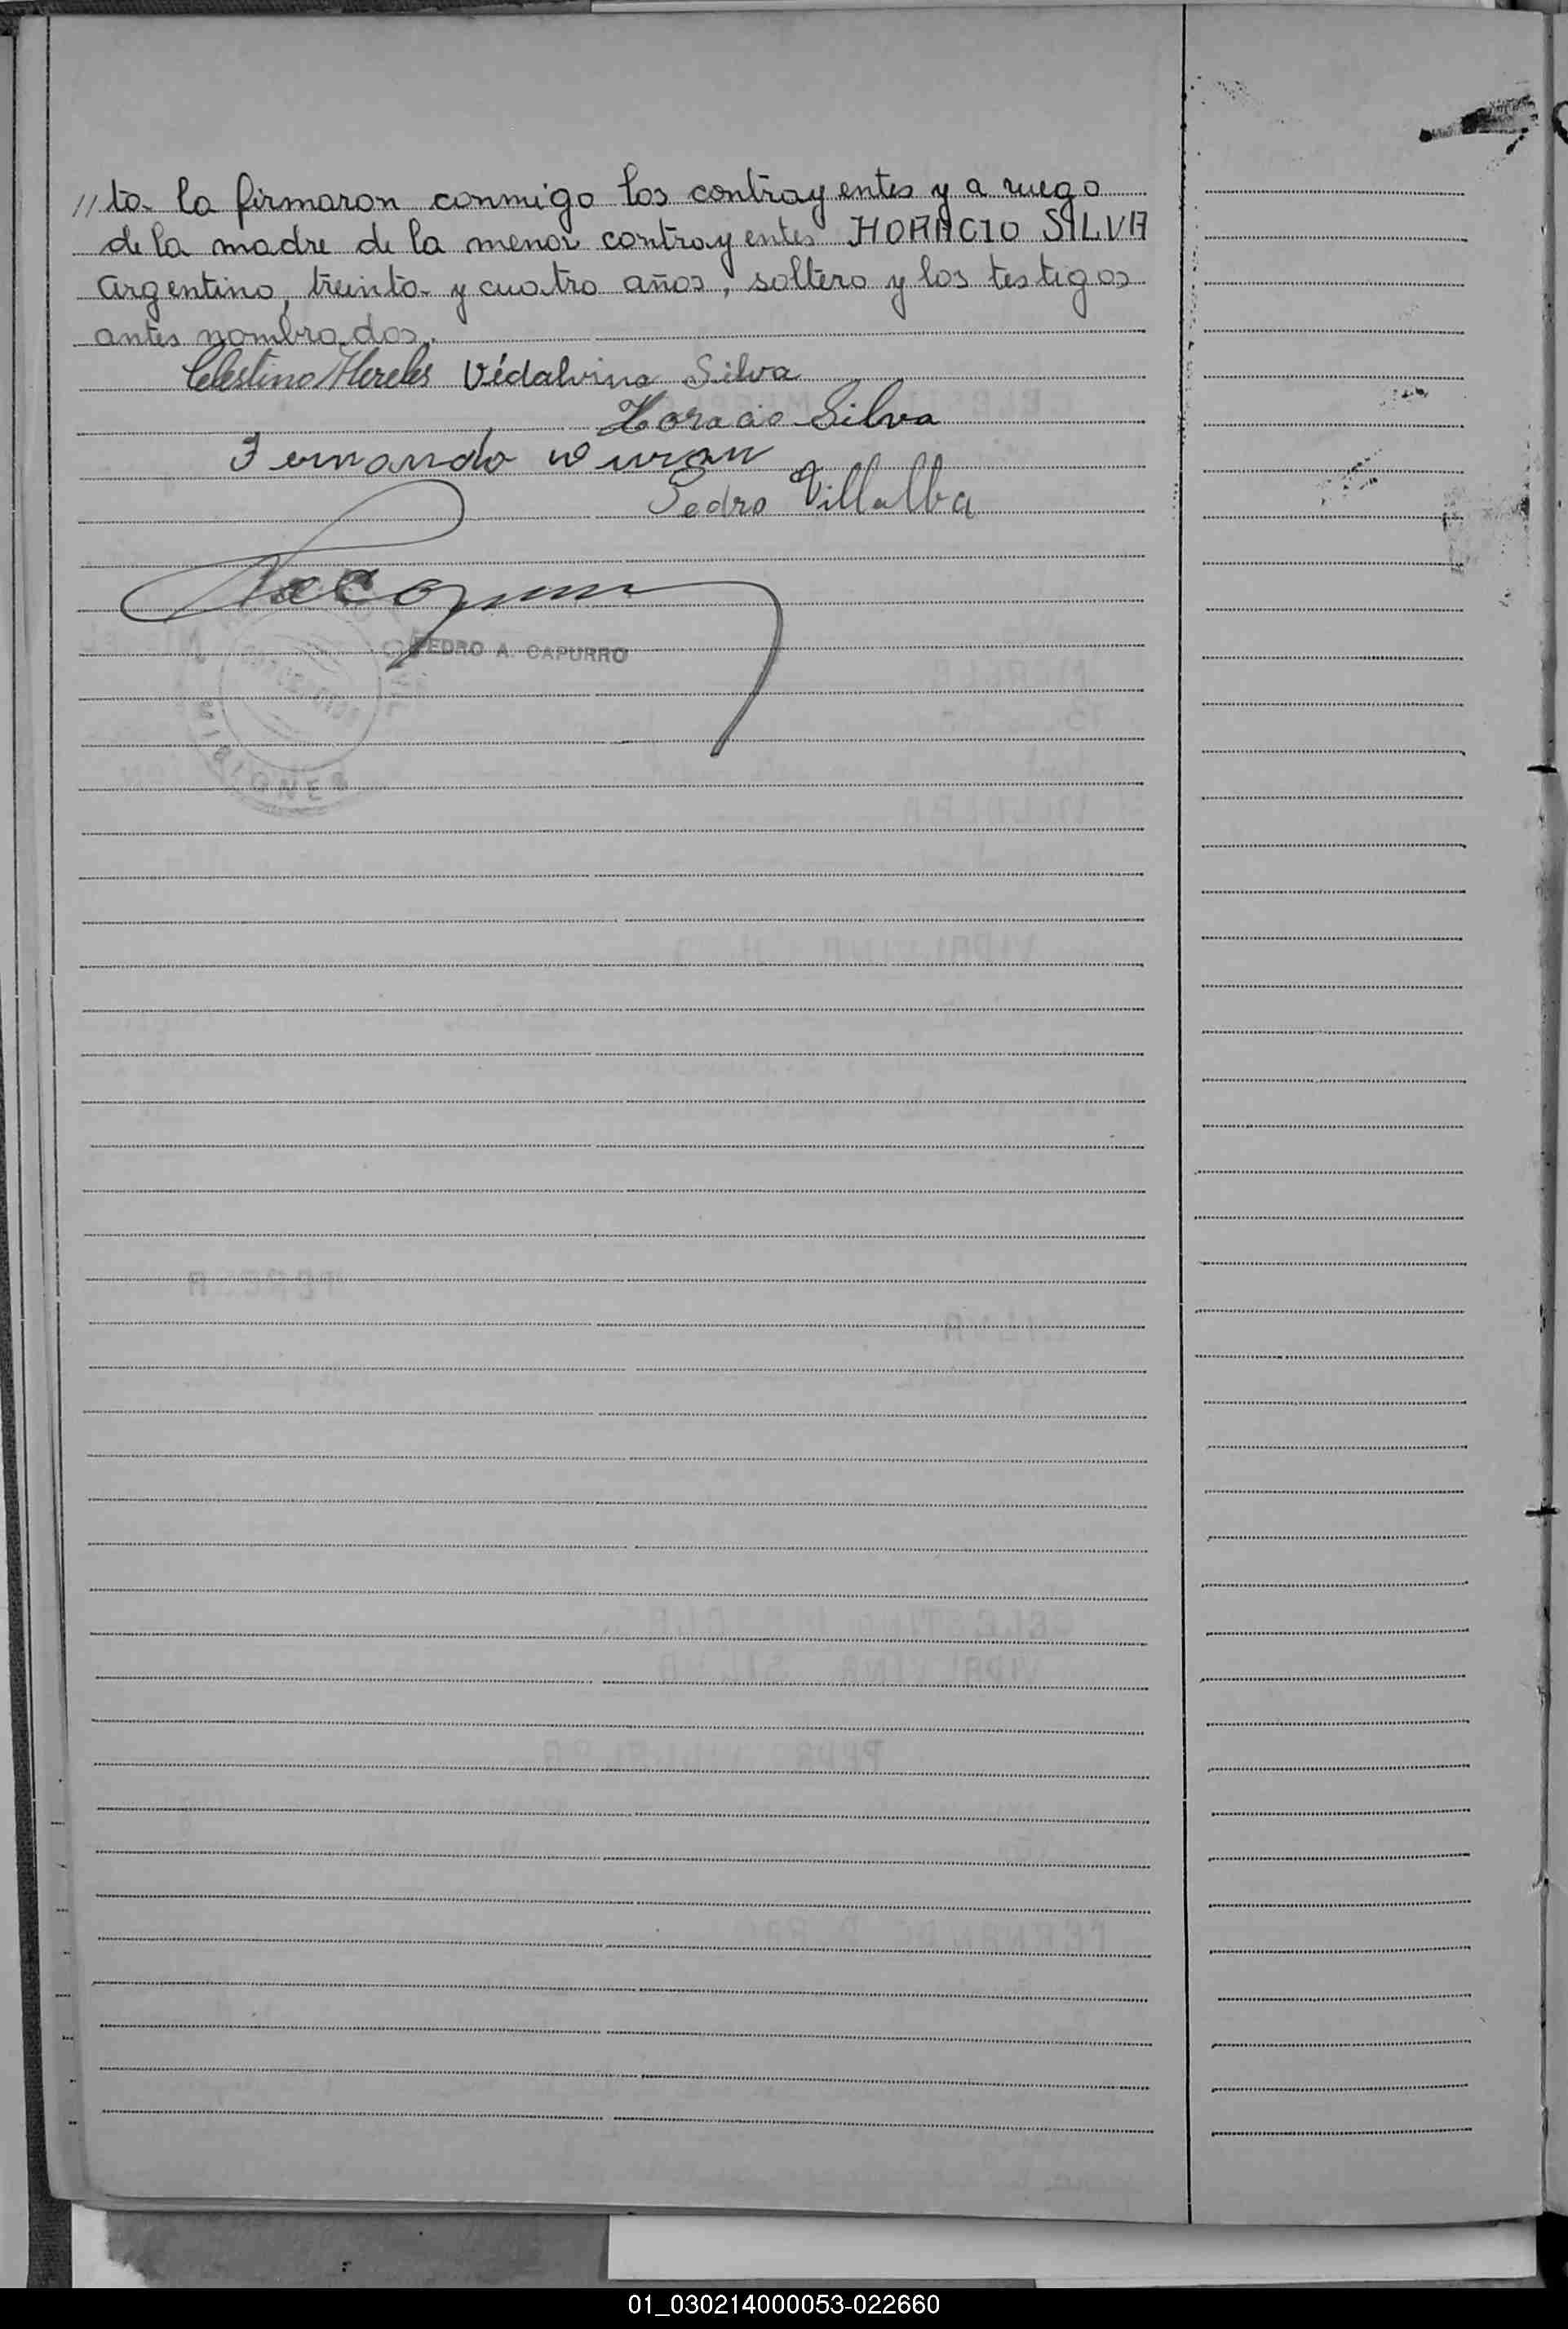 //ta la firmaron conmigo los contrayentes y a ruego
de la madre de la menor contrayentes HORACIO SILVA
argentino, treinta y cuatro años, soltero y los testigos
antes nombrados.
Celestino Mereles Vidalvina Silva
Horacio Silva
Fernando Duran
Pedro Villalba
PEDRO A. CAPURRO
MISIONES
01_030214000053-022660